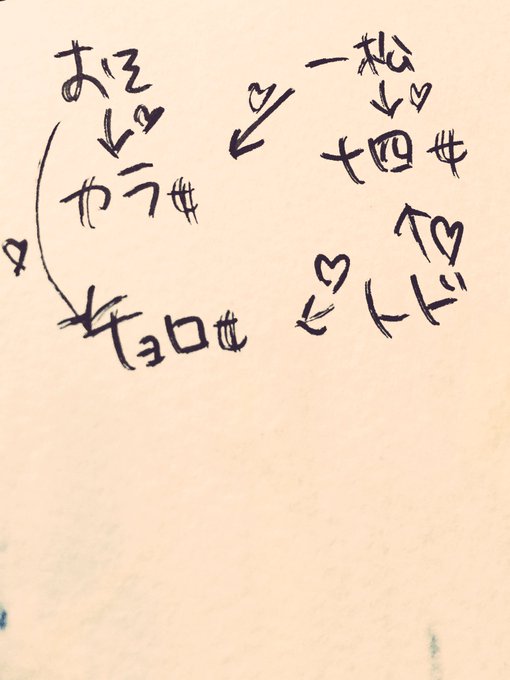 おそ
一松
カラ
十四
チョロ
トド